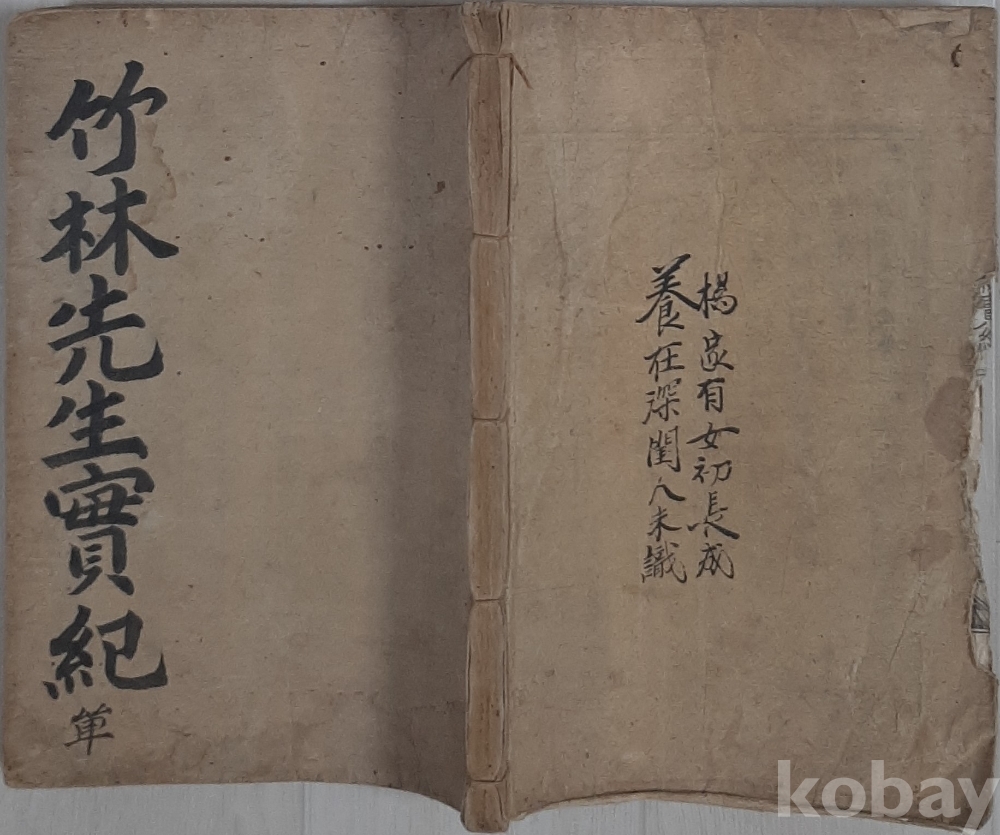 竹林先生實紀
單
楊家有女初長成
養在深閨人未識
kobay